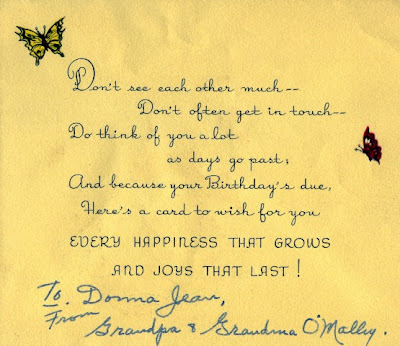 Don't see each other much--
Don't often get in touch--
Do think of you a lot
as days go past;
And because your Birthday's due,
Here's a card to wish for you
EVERY HAPPINESS THAT GROWS
AND JOYS THAT LAST!
To. Donna Jean,
From
Grandpa & Grandma O'Malley.